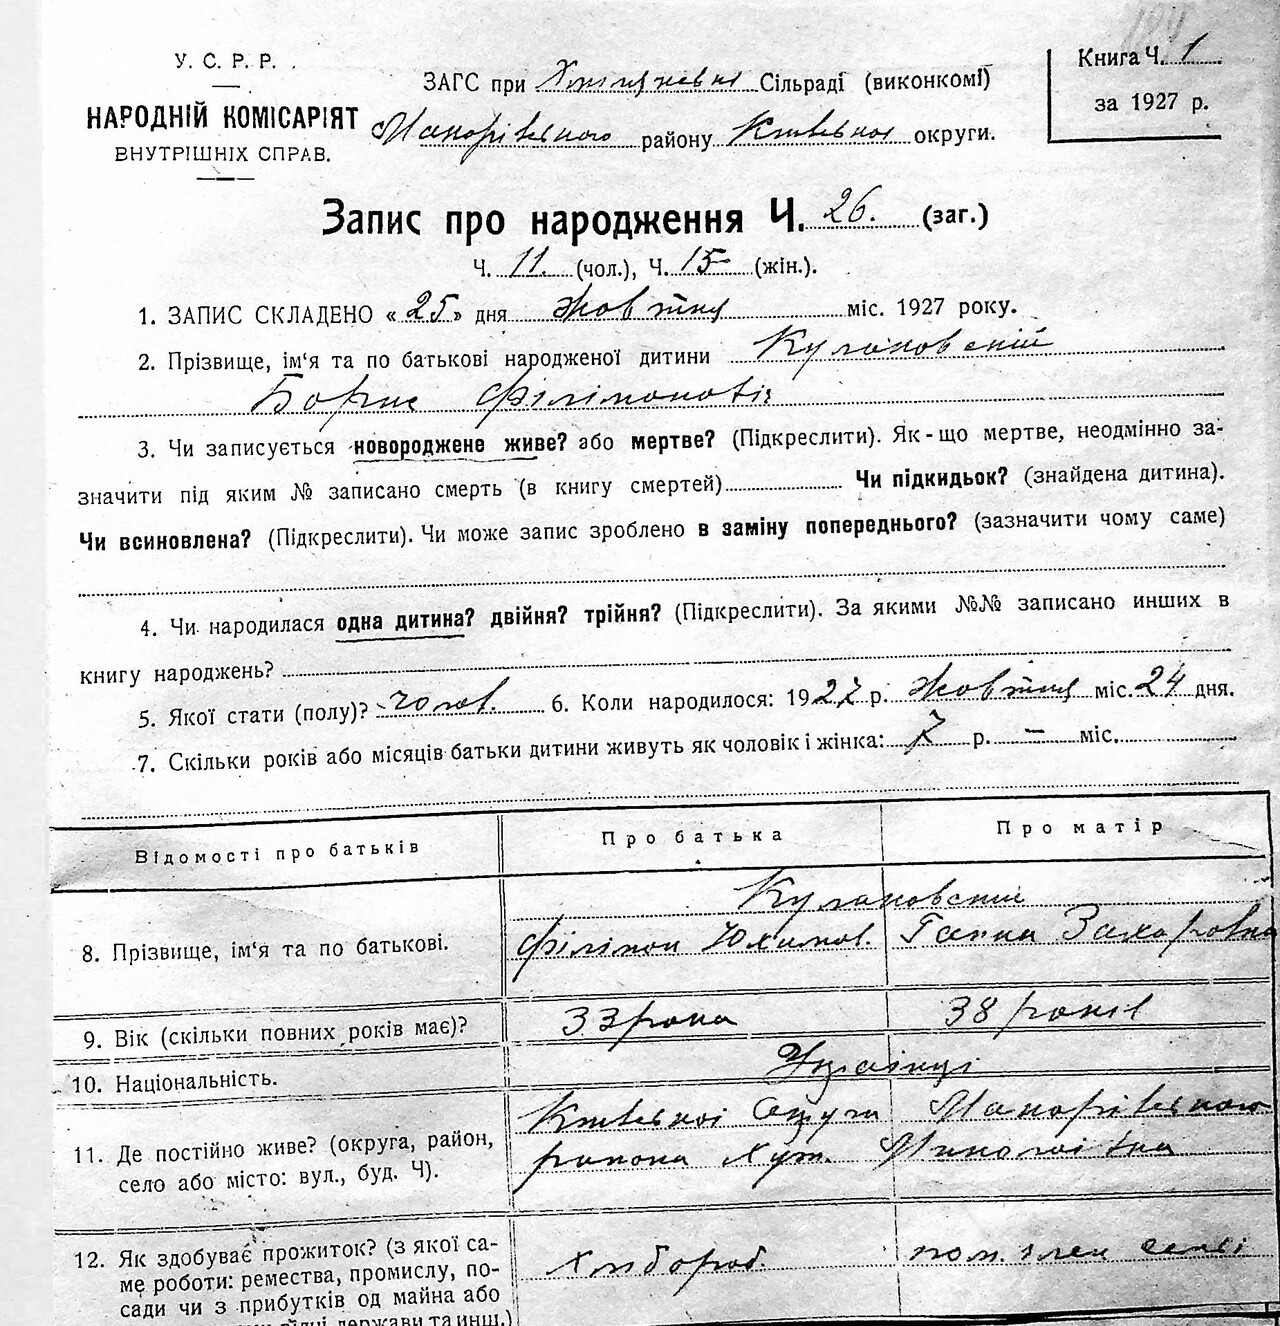 У. С. Р. Р.
НАРОДНІЙ КОМІСАРІЯТ
ВНУТРІШНІХ СПРАВ.
ЗАГС при Сільраді (виконкомі)
Макарівського району Київської округи.
Книга Ч. 1
за 1927 р.
Запис про народження Ч. 26. (заг.)
Ч. 11. (чол.), Ч. 15 (жін.).
1. ЗАПИС СКЛАДЕНО «25» дня Жовтня міс. 1927 року.
2. Прізвище, ім'я та по батькові народженої дитини Кулановській
Борис Філімонович
3. Чи записується новороджене живе? або мертве? (Підкреслити). Як-що мертве, неодмінно за-
значити під яким № записано смерть (в книгу смертей) Чи підкидьок? (знайдена дитина).
Чи всиновлена? (Підкреслити). Чи може запис зроблено в заміну попереднього? (зазначити чому саме)
4. Чи народилася одна дитина? двійня? трійня? (Підкреслити). За якими №№ записано инших в
книгу народжень?
5. Якої стати (полу)? чолов. 6. Коли народилося: 1927 р. Жовтня міс. 24 дня.
7. Скільки років або місяців батьки дитини живуть як чоловік і жінка: 7 р. — міс.
Відомості про батьків
Про батька
Про матір
8. Прізвище, ім'я та по батькові.
Кулановські
Філімон Юхимов.
Ганна Захаровна
9. Вік (скільки повних років має)?
33 рока
38 років
10. Національність.
Українці
11. Де постійно живе? (округа, район,
село або місто: вул., буд. Ч).
Київської Округи Макарівського
района Хут.
12. Як здобуває прожиток? (з якої са-
ме роботи: ремества, промислу, по-
сади чи з прибутків од майна або
держави та инш.)
Хлібороб.
член семьї